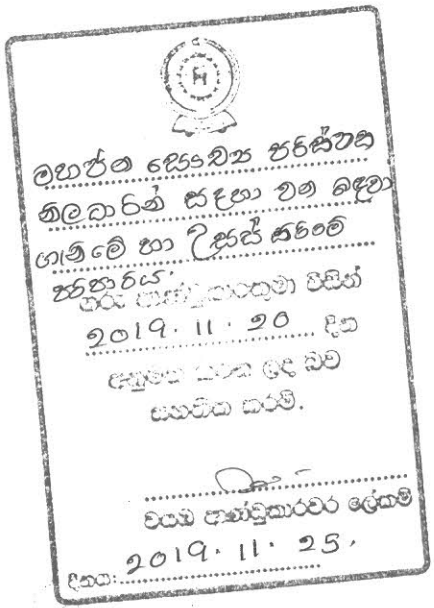 මහජන සෞඛ්‍ය පරීක්ෂක
නිලධාරීන් සදහා වන බඳවා
ගැනීමේ හා උසස් කිරීමේ
පරිපාටිය.
ගරු ආණ්ඩුකාරතුමා විසින්
2019. 11. 20 දින
අනුමත කරන ලද බව
සහතික කරමි.
වයඹ ආණ්ඩුකාරවර ලේකම්
දිනය: 2019. 11. 25.